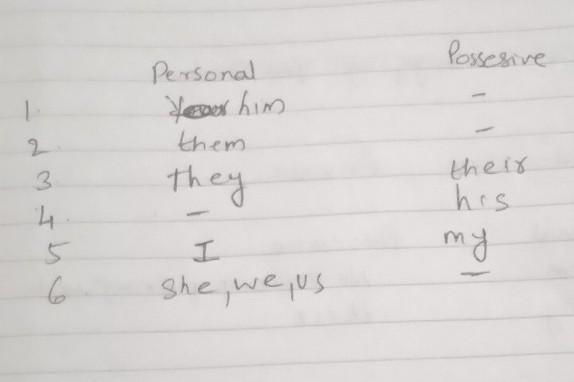 Personal Possesive
1. him -
2. them -
3 they their
4. - his
5 I my
6 she, we, us -